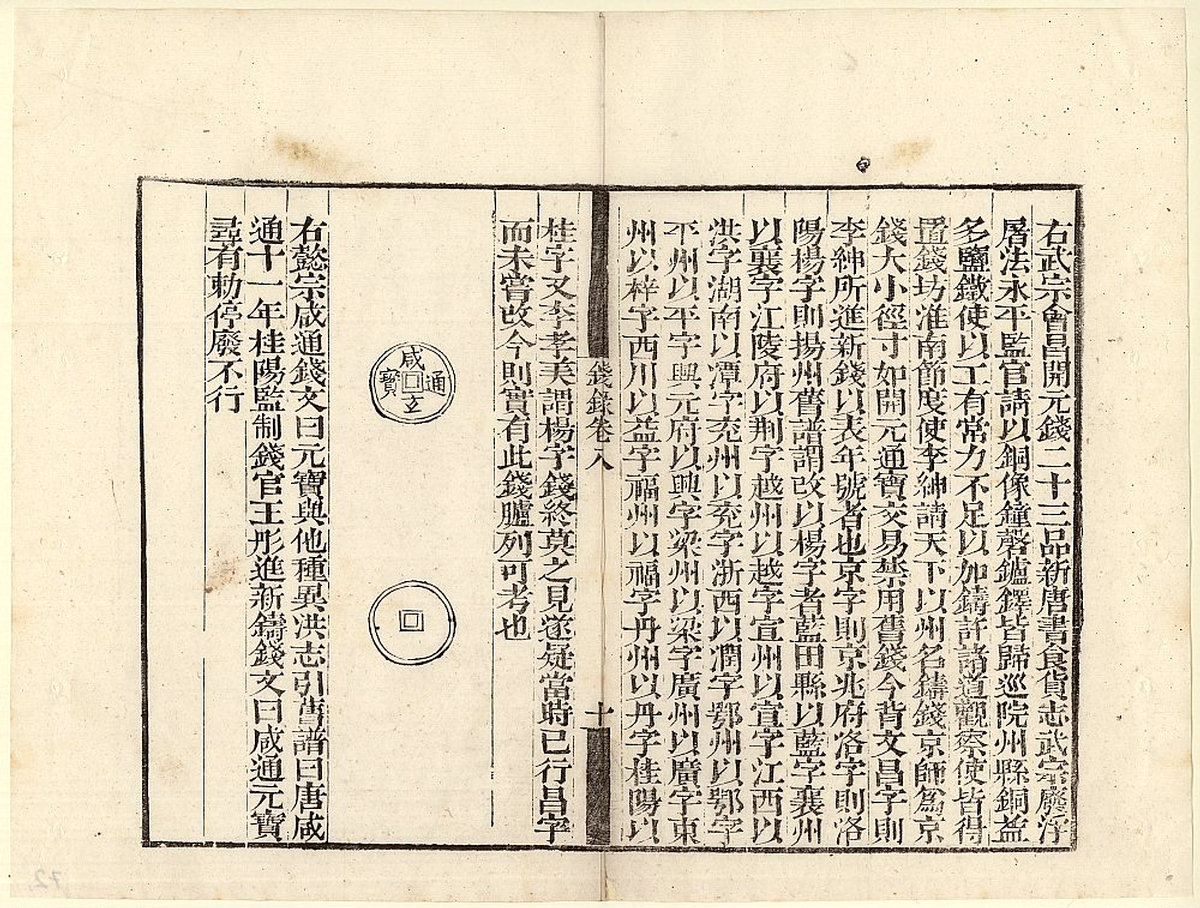 右武宗會昌開元錢二十三品新唐書食貨志武宗廢浮
屠法永平監官請以銅像鐘磬鑪鐸皆歸巡院州縣銅益
多鹽鐵使以工有常力不足以加鑄許諸道觀察使皆得
置錢坊淮南節度使李紳請天下以州名鑄錢京師爲京
錢大小徑寸如開元通寶交易禁用舊錢今背文昌字則
李紳所進新錢以表年號者也京字則京兆府洛字則洛
陽楊字則揚州舊譜謂改以楊字者藍田縣以藍字襄州
以襄字江陵府以荆字越州以越字宣州以宣字江西以
洪字湖南以潭字兖州以兖字浙西以潤字鄂州以鄂字
平州以平字興元府以興字梁州以梁字廣州以廣字東
州以梓字西川以益字福州以福字丹州以丹字桂陽以
錢錄卷八
十
桂字又李孝美謂楊字錢終莫之見遂疑當時已行昌字
而未嘗改今則實有此錢臚列可考也
咸通玄寶
右懿宗咸通錢文曰元寶與他種異洪志引舊譜曰唐咸
通十一年桂陽監制錢官王彤進新鑄錢文曰咸通元寶
尋有勅停廢不行
72